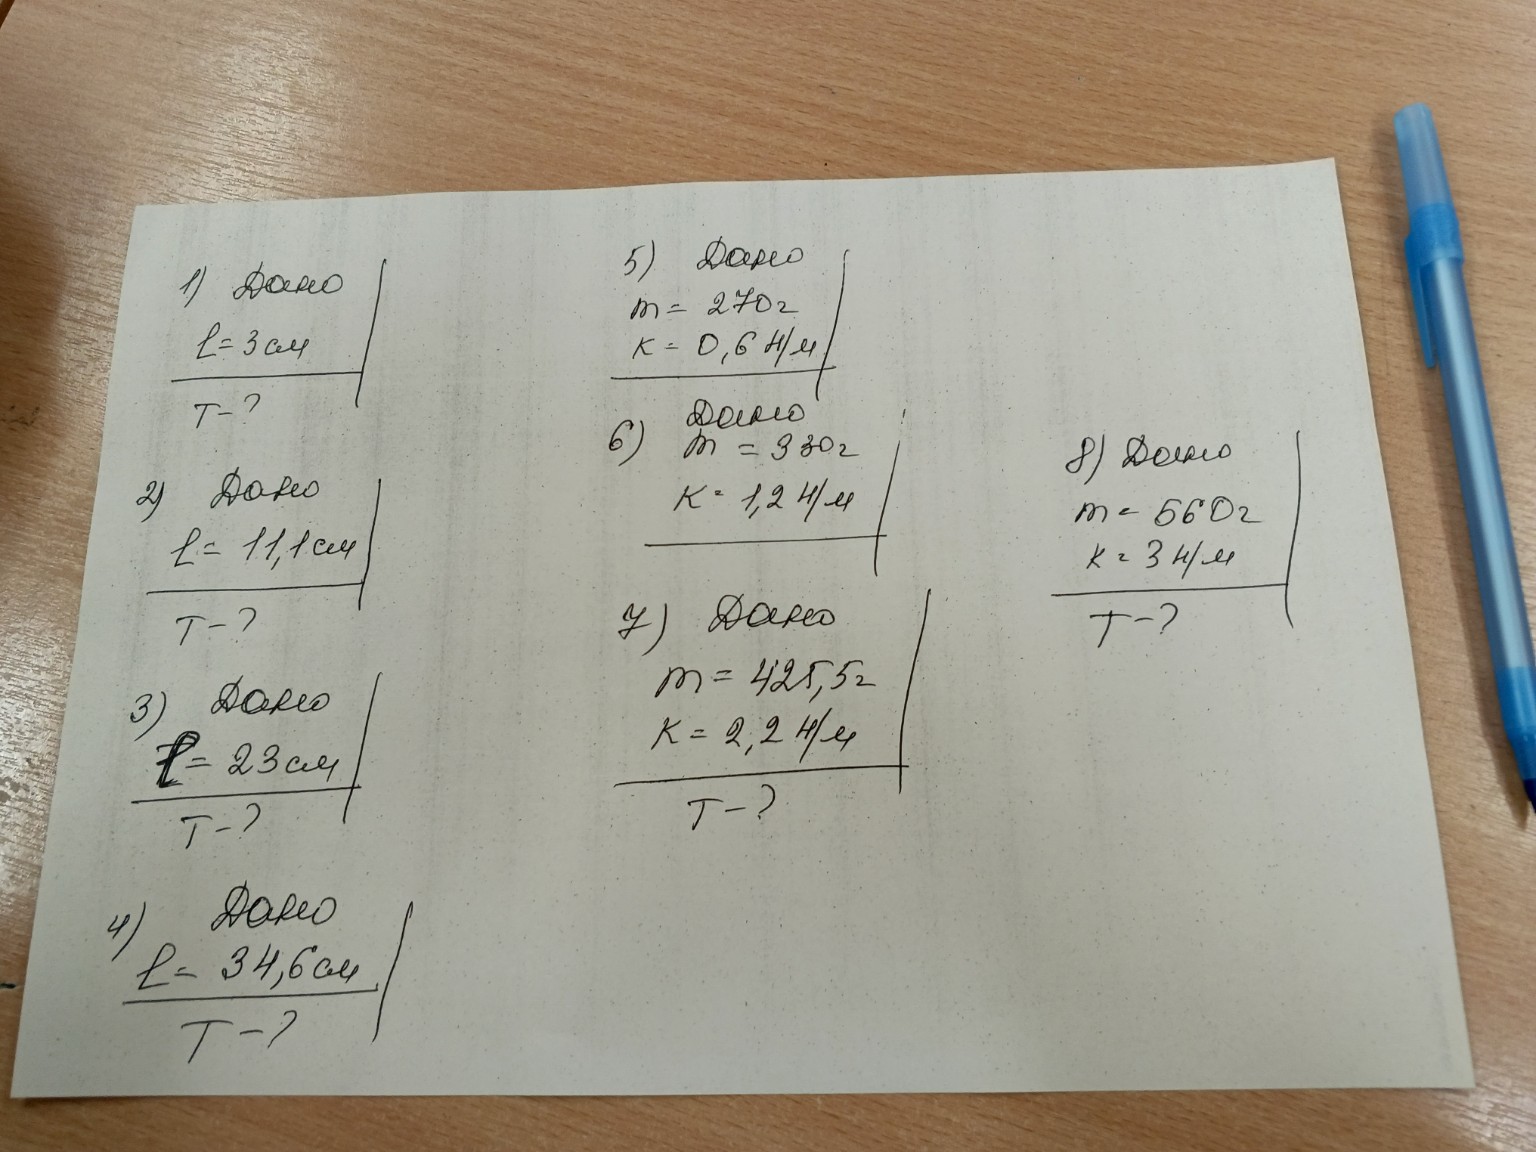 1) Дано
l = 3 см
T - ?
2) Дано
l = 11,1 см
T - ?
3) Дано
l = 23 см
T - ?
4) Дано
l = 34,6 см
T - ?
5) Дано
m = 270 г
K = 0,6 Н/м
6) Дано
m = 330 г
K = 1,2 Н/м
7) Дано
m = 425,5 г
K = 2,2 Н/м
T - ?
8) Дано
m = 560 г
K = 3 Н/м
T - ?